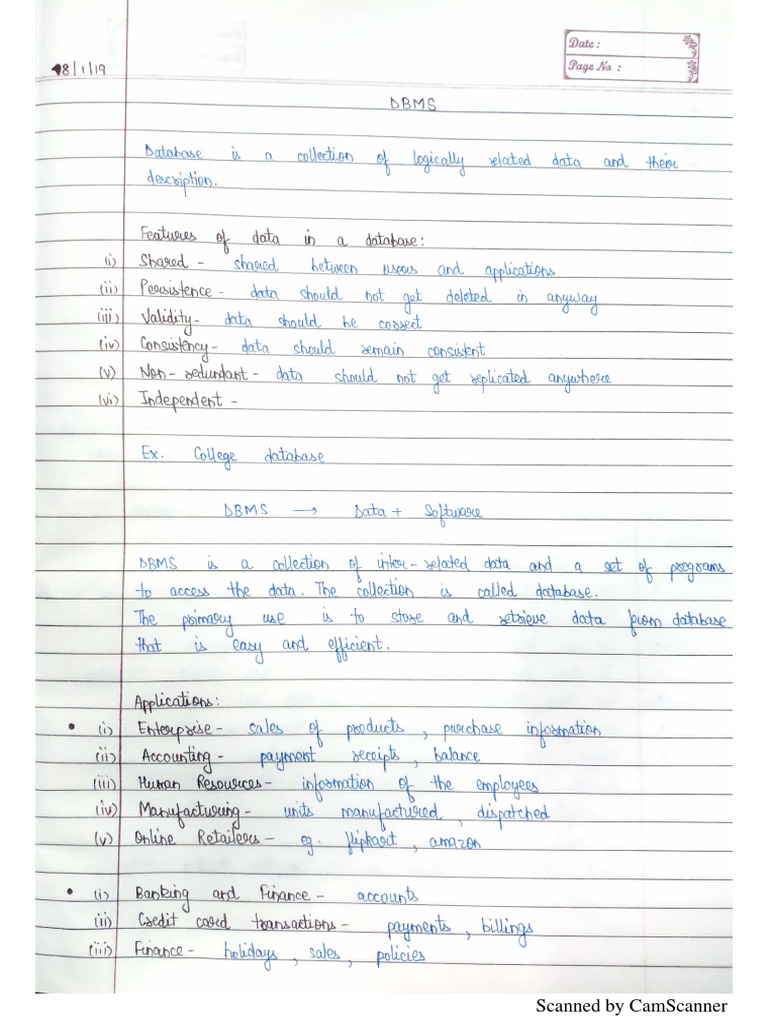 Date :
Page No :
8/1/19
DBMS
Database is a collection of logically related data and their
description.
Features of data in a database:
(i) Shared - shared between users and applications
(ii) Persistence - data should not get deleted in anyway
(iii) Validity - data should be correct
(iv) Consistency - data should remain consistent
(v) Non - redundant - data should not get replicated anywhere
(vi) Independent -
Ex. College database
DBMS → Data + Software
DBMS is a collection of inter-related data and a set of programs
to access the data. The collection is called database.
The primary use is to store and retrieve data from database
that is easy and efficient.
Applications:
• (i) Enterprise - sales of products, purchase information
(ii) Accounting - payment receipts, balance
(iii) Human Resources - information of the employees
(iv) Manufacturing - units manufactured, dispatched
(v) Online Retailers - eg. flipkart, amazon
• (i) Banking and Finance - accounts
(ii) Credit card transactions - payments, billings
(iii) Finance - holidays, sales, policies
Scanned by CamScanner